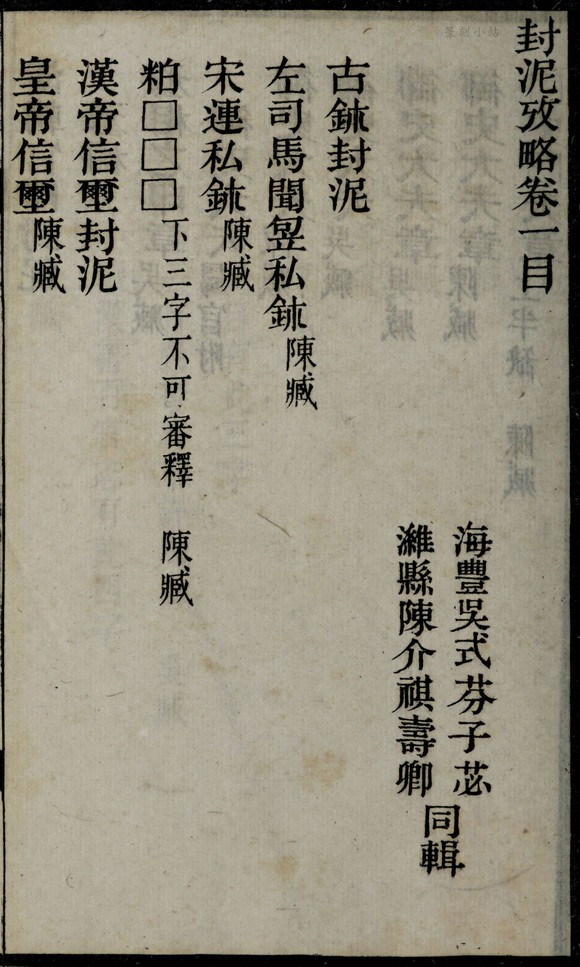 封泥攷略卷一目
海豐吳式芬子苾
濰縣陳介祺壽卿
同輯
古鉥封泥
左司馬聞竘私鉥陳臧
宋連私鉥陳臧
粕□□□下三字不可審釋 陳臧
漢帝信壐封泥
皇帝信壐陳臧
篆刻小站